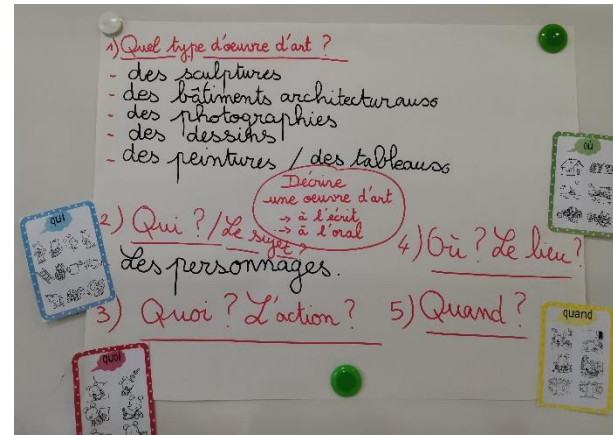 1) Quel type d'oeuvre d'art ?
- des sculptures
- des bâtiments architecturaux
- des photographies
- des dessins
- des peintures / des tableaux
Décrire
une oeuvre d'art
→ à l'écrit
→ à l'oral
2) Qui ? / Le sujet ?
Les personnages.
3) Quoi ? L'action ?
4) Où ? Le lieu ?
5) Quand ?
qui
quoi
où
quand